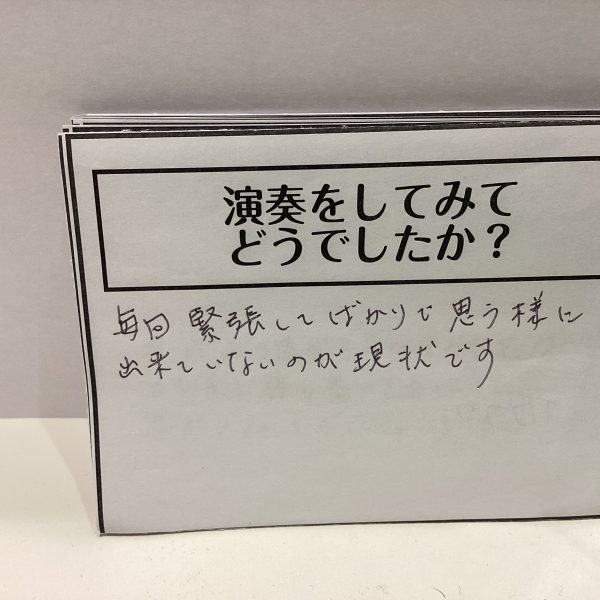 演奏をしてみて
どうでしたか？
毎回 緊張してばかりで思う様に
出来ていないのが現状です